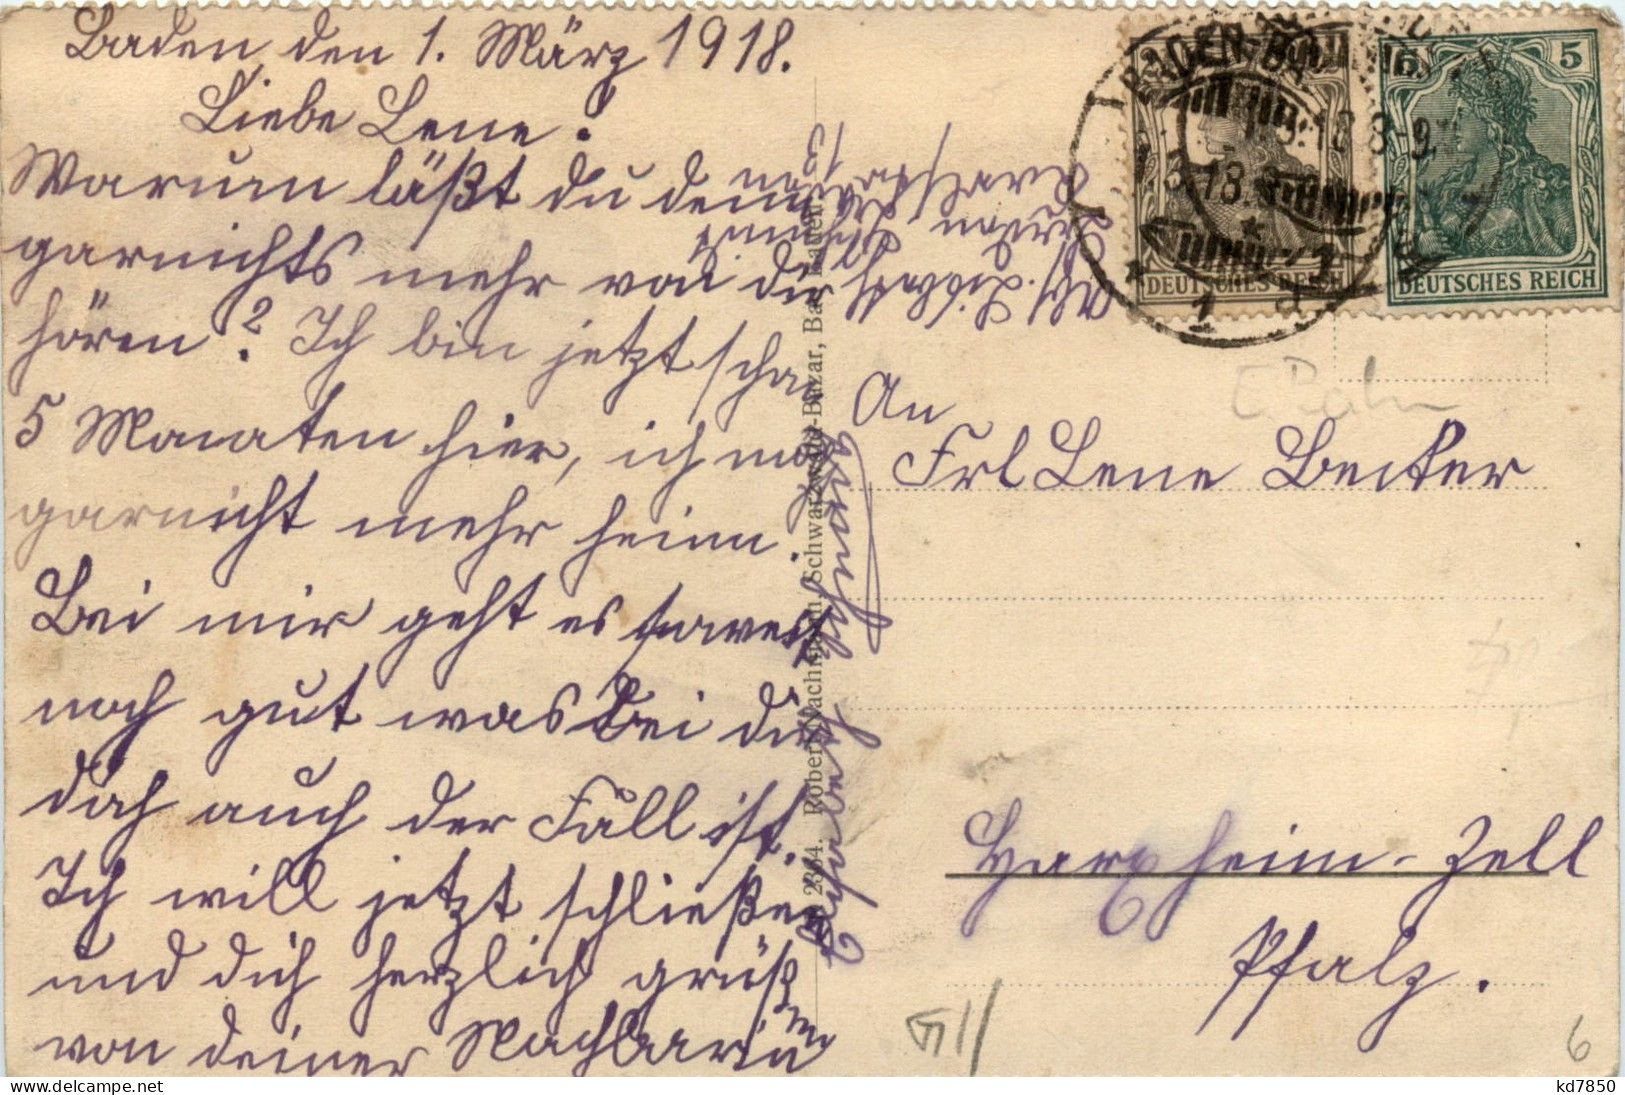 Baden den 1. März 1918.
Liebe Lene!
Warum läßt du denn
garnichts mehr von dir
hören? Ich bin jetzt schon
5 Monaten hier, ich mag
garnicht mehr heim.
Bei mir geht es soweit
noch gut was bei dir
doch auch der Fall ist.
Ich will jetzt schließen
und dich herzlich grüßen
von deiner Nachbarin
Abs.
An
Frl Lene Becker
Harxheim-Zell
Pfalz.
BADEN-BA
1.3.18. 8-9
* 1 a
5
DEUTSCHES REICH
DEUTSCHES REICH
2384. Robert Nachmann, Schwarzwald-Bazar, Baden-Baden.
6
kd7850